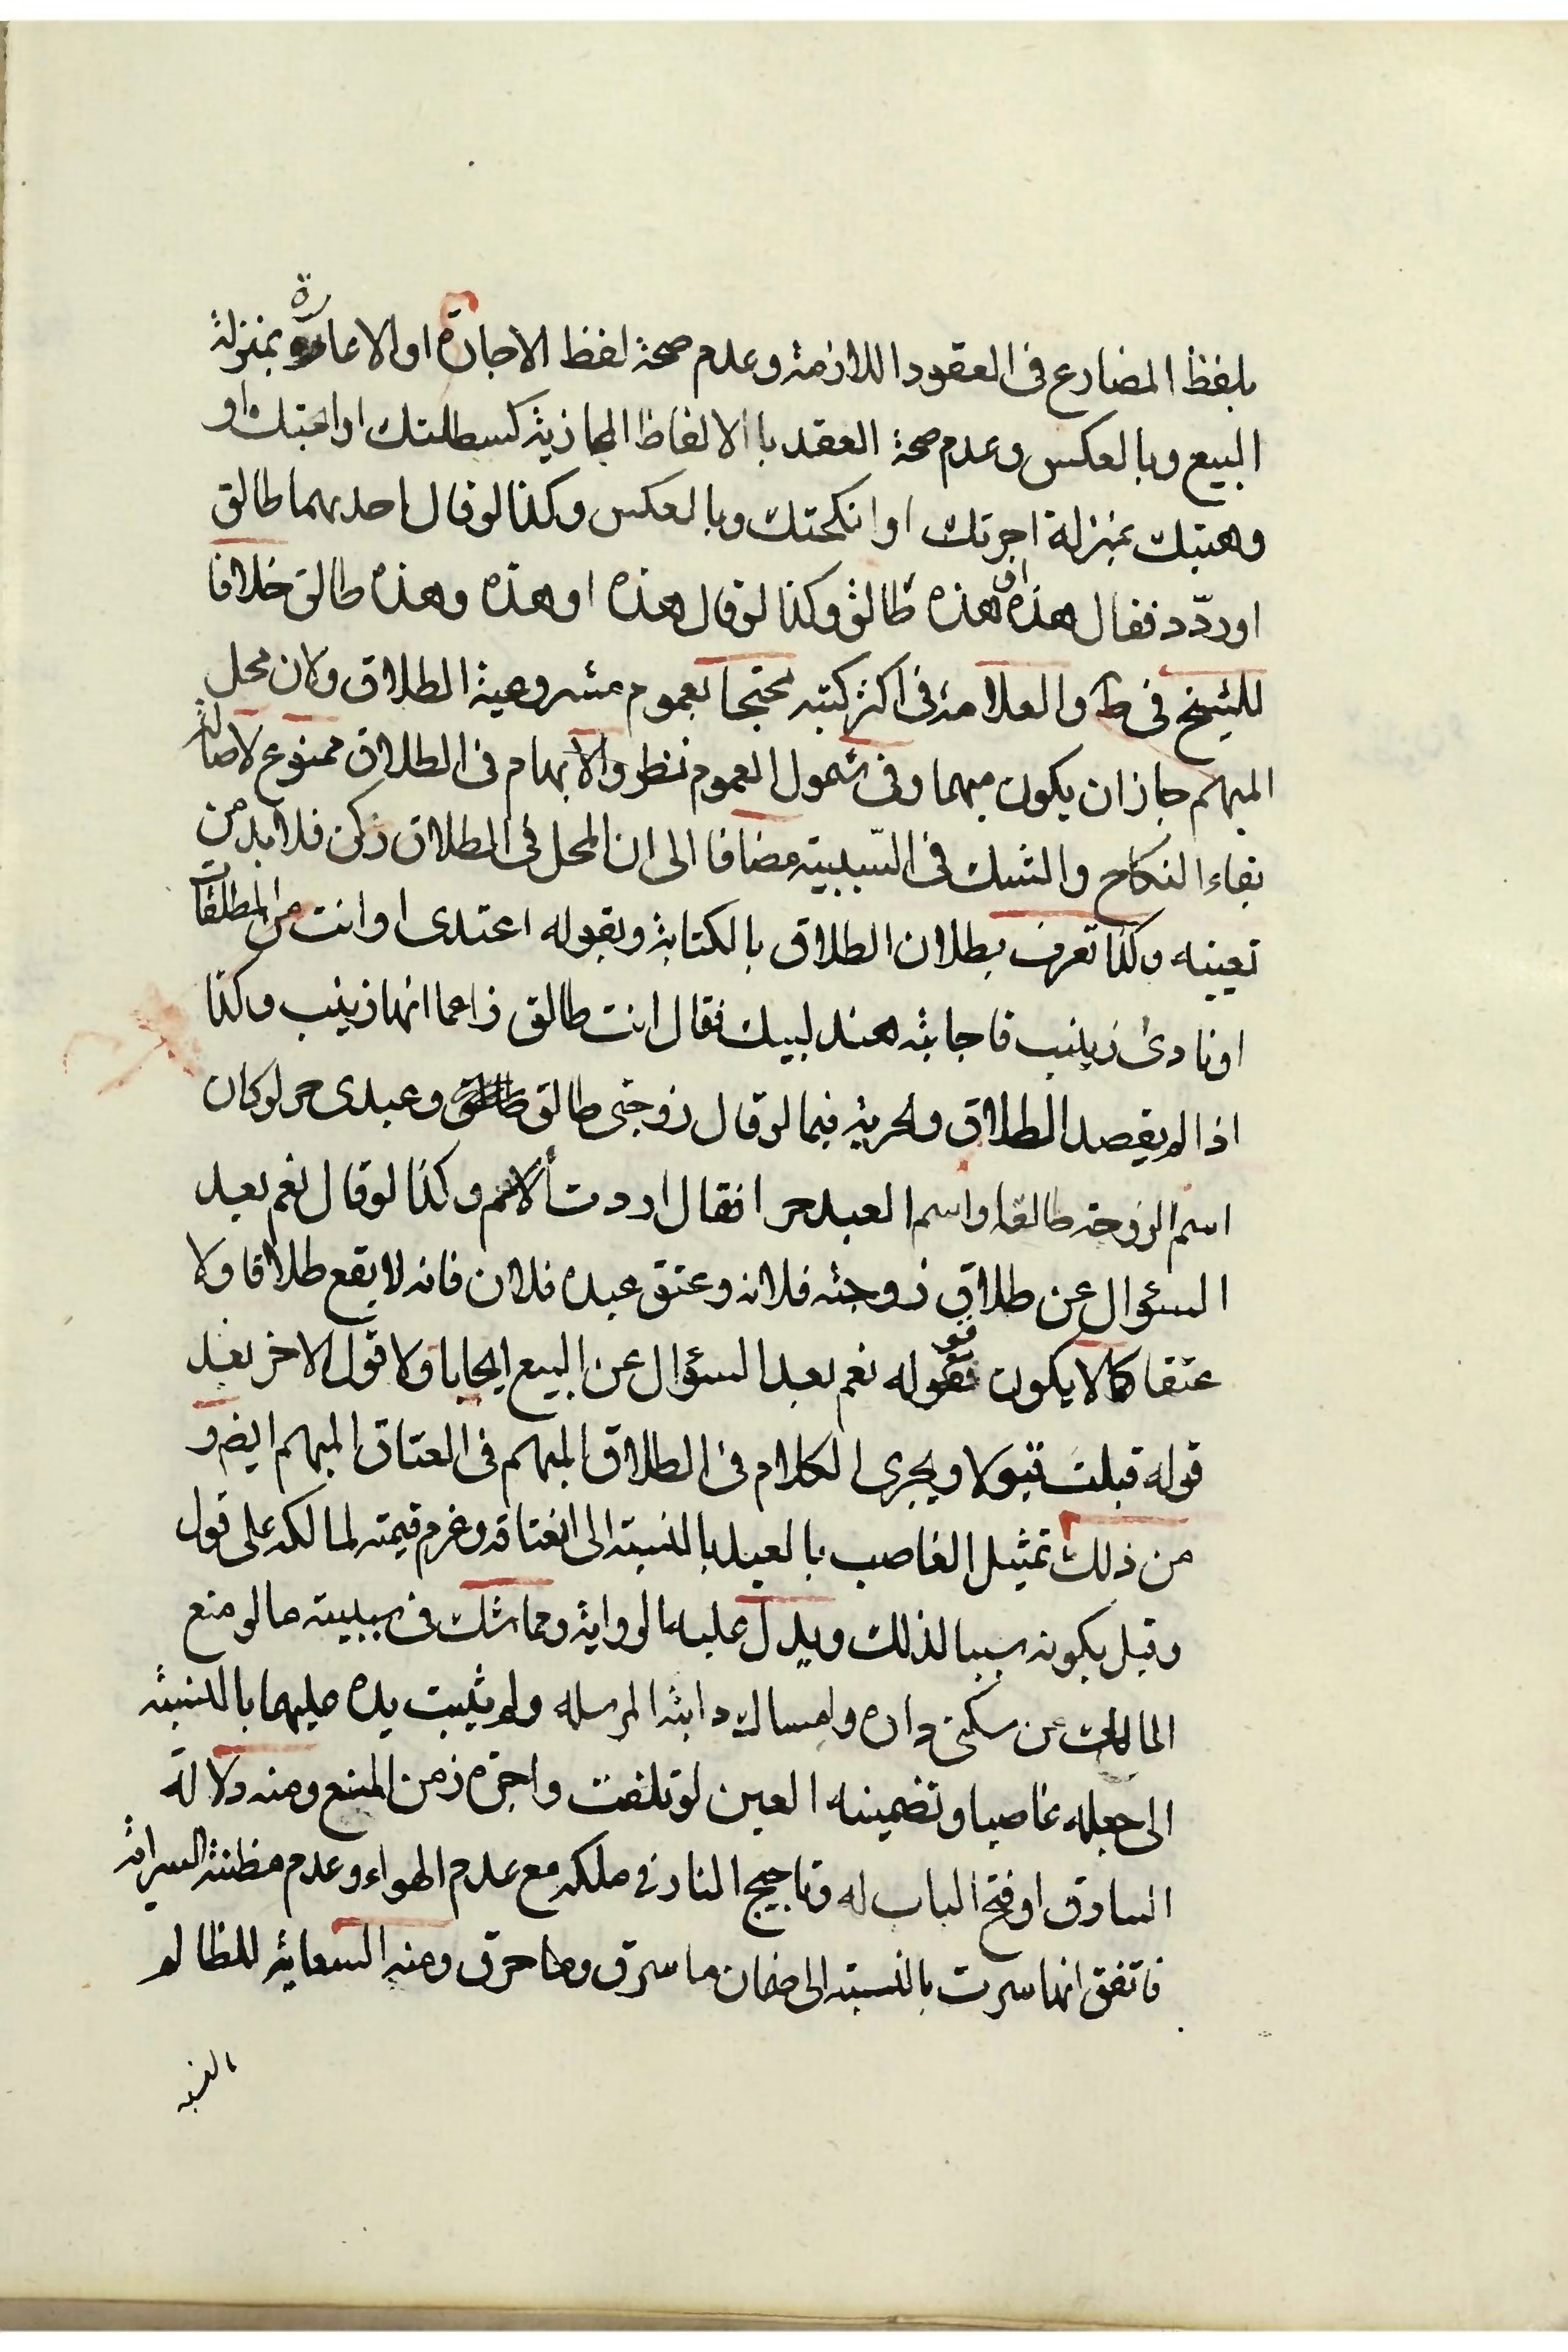 بلفظ المضارع فى العقود اللازمة وعدم صحة لفظ الاجارة او الاعارة بمنزلة
البيع وبالعكس وعدم صحة العقد باالالفاظ المجازية كسطلتك او اهبتك او
وهبتك بمنزلة اجرتك او انكحتك وبالعكس وكذا لو قال احديهما طالق
او ردّد فقال هذه او هذه طالق وكذا لو قال هذه او هذه وهذه طالق خلافا
للشيخ فى ط والعلامة فى اكثر كتبه محتجا بعموم مشروعية الطلاق ولان محل
المبهم جاز ان يكون مبهما وفى شمول العموم نظر والابهام فى الطلاق ممنوع لاصالة
بقاء النكاح والشك فى السّببية مضافا الى ان المحل فى الطلاق ركن فلا بد من
تعيينه وكذا تعرف بطلان الطلاق بالكتابة وبقوله اعتدى او انت من المطلقات
او نادى زينب فاجابته هند لبيك فقال انت طالق زاعما انها زينب وكذا
اذا لم يقصد الطلاق والحرية فيما لو قال زوجتى طالق وعبدى حر لو كان
اسم الزوجة طالقا واسم العبد حرا فقال اردت الاسم وكذا لو قال نعم بعد
السؤال عن طلاق زوجته فلانه وعتق عبده فلان فانه لا يقع طلاقا ولا
عتقا كما لا يكون قوله نعم بعد السؤال عن البيع ايجابا ولا قول الاخر بعد
قوله قبلت قبولا ويجرى الكلام فى الطلاق المبهم فى العتاق المبهم ايضو
من ذلك تمثيل الغاصب بالعبد بالنسبة الى انعتاقه وغرم قيمته لمالكه على قول
وقيل بكونه سببا لذلك ويدل عليه الرواية ومما شك فى سببيته ما لو منع
المالك عن سكنى داره وامساك دابته المرسله ولم يثبت يده عليهما بالنسبة
الى جعله غاصبا وتضمينه العين لو تلفت واجرة زمن المنع ومنه دلالة
السارق او فتح الباب له وتاجيج النار فى ملكه مع عدم الهواء وعدم مظنة السراية
فاتفق انها سرت بالنسبة الى ضمان ما سرق وما حرق ومنه السعاية للظالم